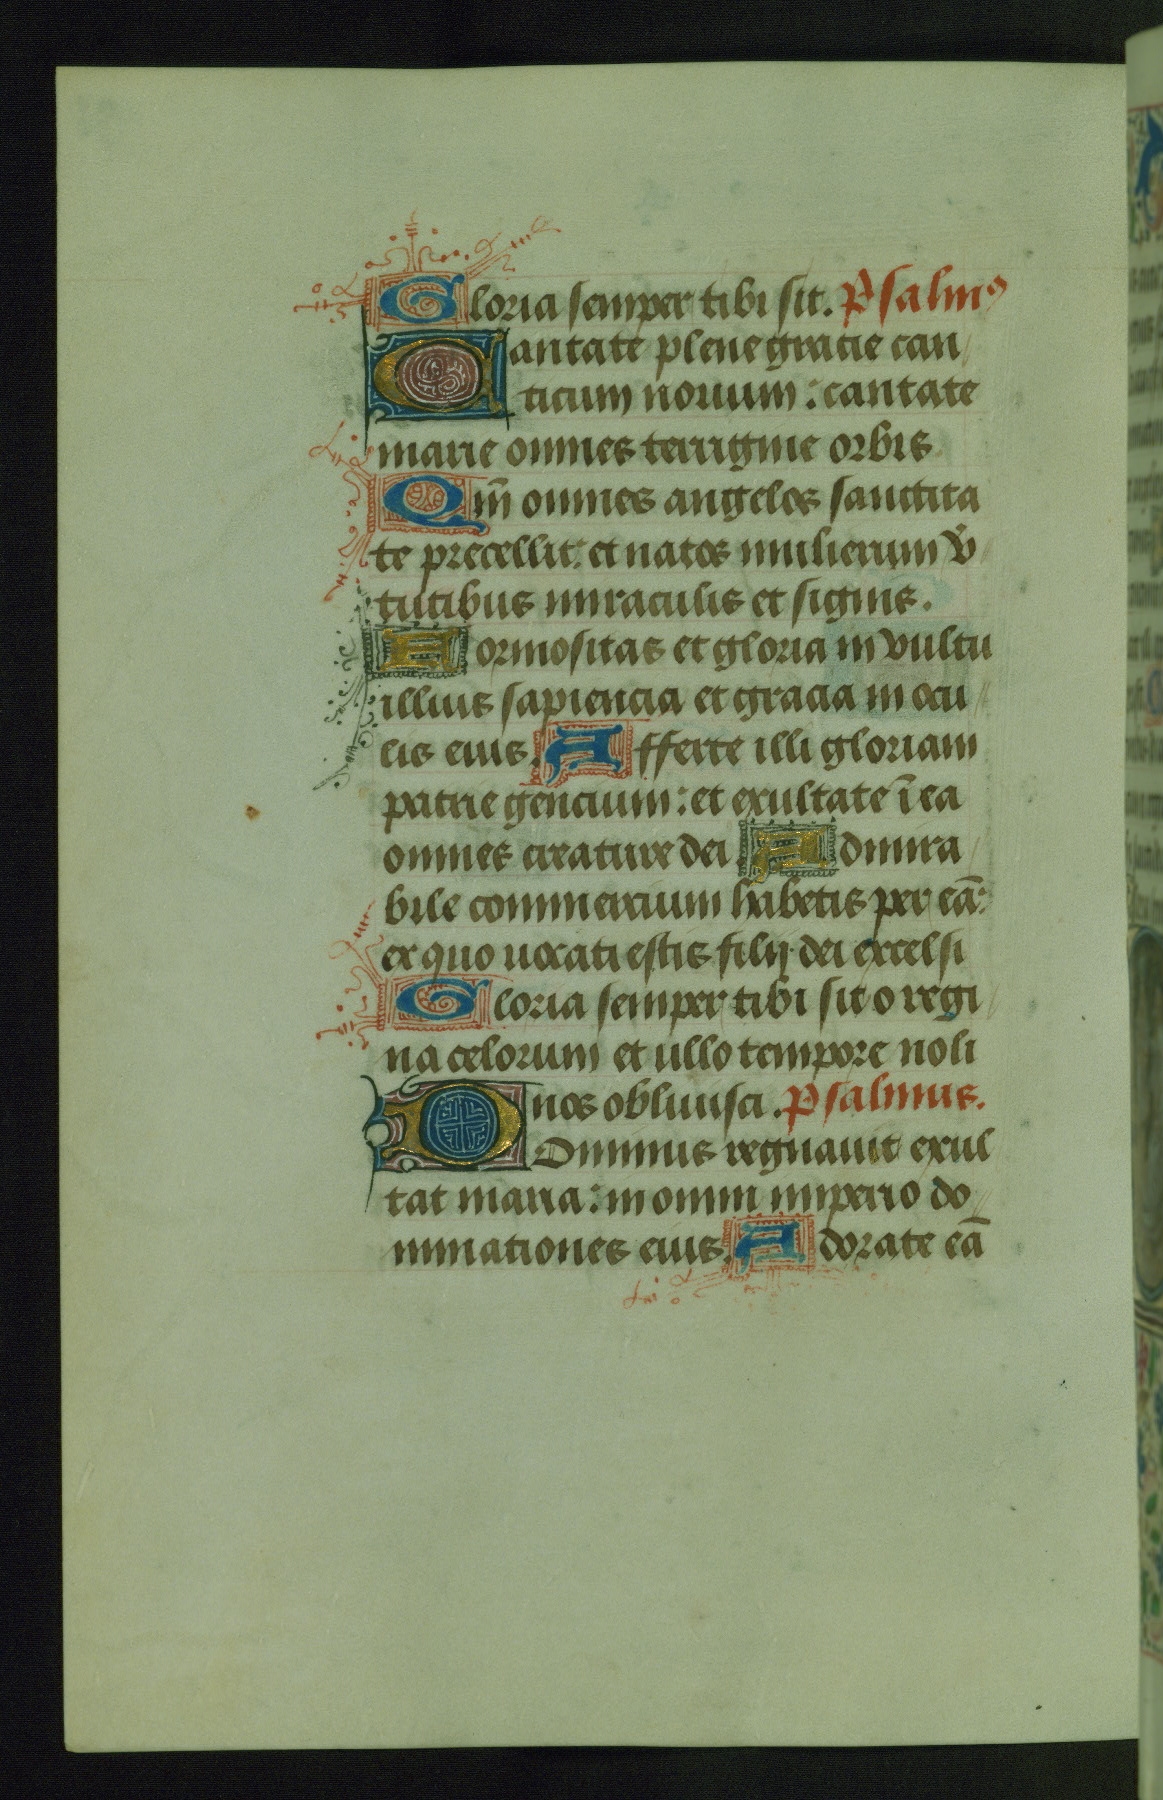 Gloria semper tibi sit. Psalmꝰ
Cantate plene gratie can
ticum nouum: cantate
marie omnes terrigine orbis
Qm̄ omnes angelos sanctita
te precellit: et natos mulierum v̾
tutibus miraculis et signis.
Formositas et gloria in vultu
illius sapiencia et gracia in ocu
lis eius. Afferte illi gloriam
patrie gencium: et exultate ī ea
omnes creature dei. Admira
bile commercium habetis per eā:
ex quo uocati estis filij dei excelsi
Gloria semper tibi sit o regi
na celorum et ullo tempore noli
nos obliuisci. Psalmus.
Dominus regnauit exul
tat maria: in omni imperio do
minationes eius. Adorate eā